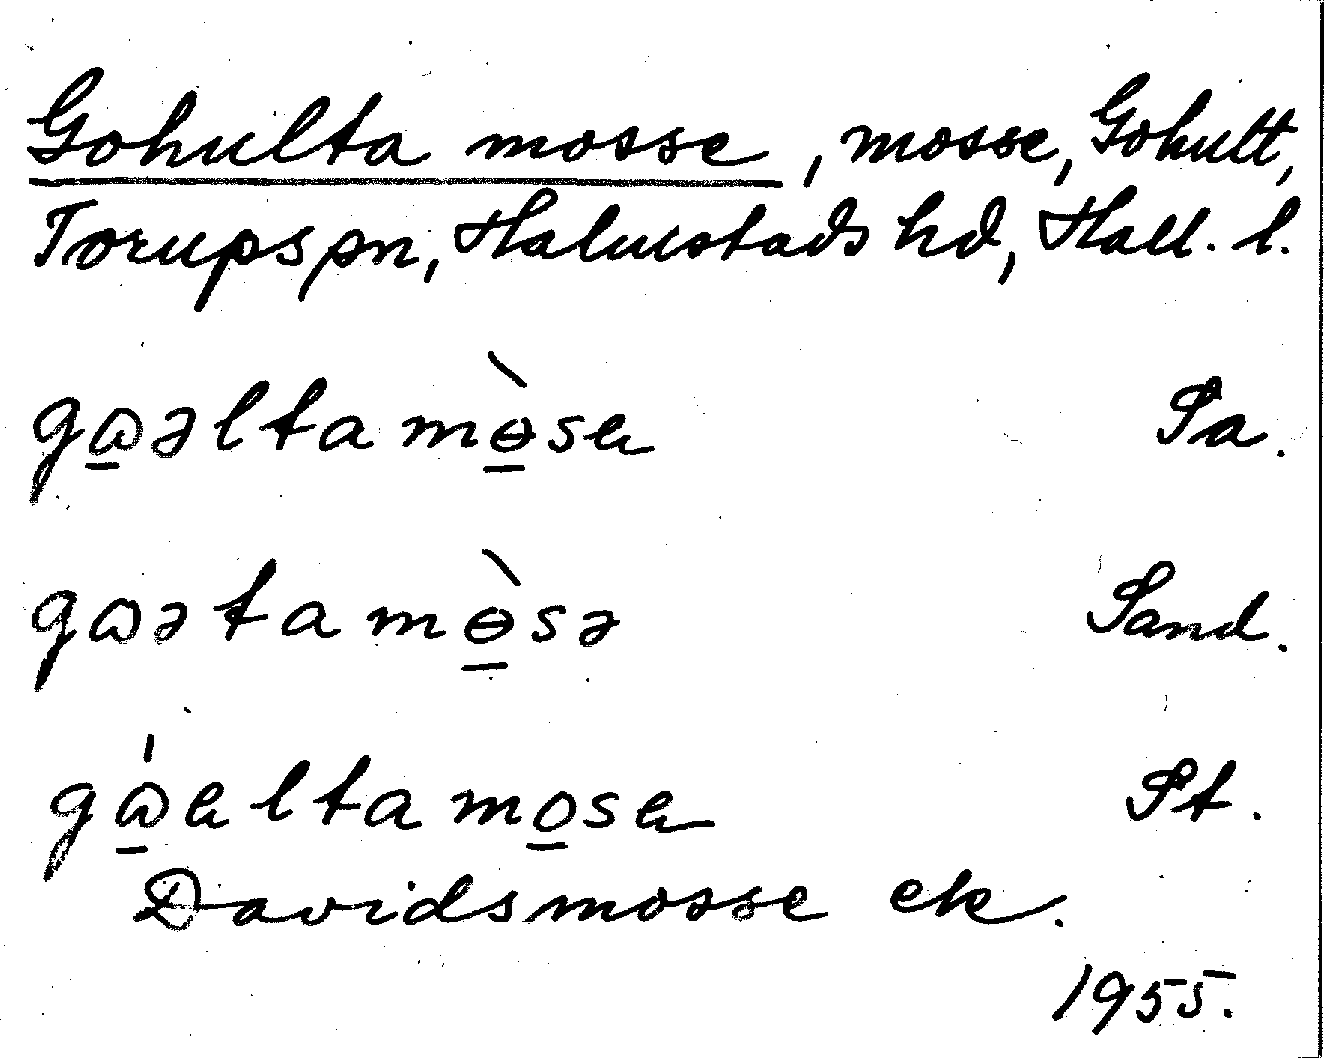 Gohulta mosse, mosse, Gohult,
Torups sn, Halmstads hd, Hall. l.
gω̲əltamɵ̲̀sɐ Sa.
gωətamɵ̲̀sə Sand.
gώ̲ɐltamo̲sɐ St.
Davidsmosse ek.
1955.